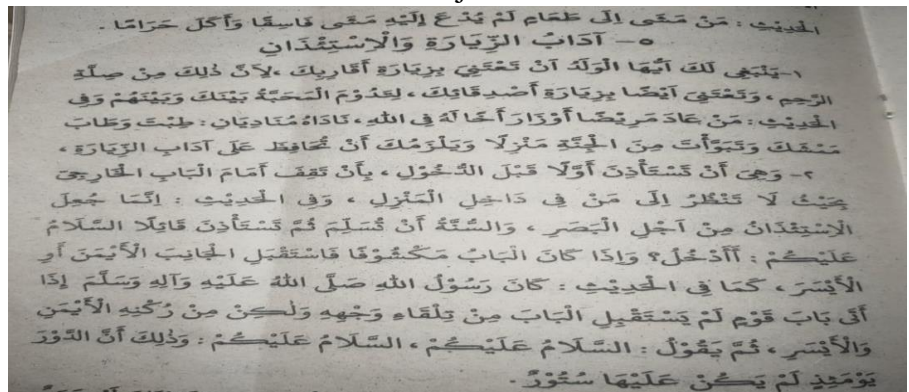 الْحَدِيْثِ : مَنْ مَشَى إِلَى طَعَامٍ لَمْ يُدْعَ إِلَيْهِ مَشَى فَاسِقًا وَأَكَلَ حَرَامًا .
٥- آدَابُ الزِّيَارَةِ وَالْاِسْتِئْذَانِ
١-يَنْبَغِى لَكَ أَيُّهَا الْوَلَدُ أَنْ تَعْتَنِيَ بِزِيَارَةِ أَقَارِبِكَ ،لِأَنَّ ذٰلِكَ مِنْ صِلَةِ
الرَّحِمِ ، وَتَعْتَنِيَ أَيْضًا بِزِيَارَةِ أَصْدِقَائِكَ ، لِتَدُوْمَ الْمَحَبَّةُ بَيْنَكَ وَبَيْنَهُمْ وَفِى
الْحَدِيْثِ : مَنْ عَادَ مَرِيْضًا أَوْ زَارَ أَخًا لَهُ فِى اللهِ ، نَادَاهُ مُنَادِيَانِ : طِبْتَ وَطَابَ
مَمْشَكَ وَتَبَوَّأْتَ مِنَ الْجَنَّةِ مَنْزِلًا وَيَلْزَمُكَ أَنْ تُحَافِظَ عَلَى آدَابِ الزِّيَارَةِ ،
٢- وَهِىَ أَنْ تَسْتَأْذِنَ أَوَّلًا قَبْلَ الدُّخُوْلِ ، بِأَنْ تَقِفَ أَمَامَ الْبَابِ الْخَارِجِىِّ
بِحَيْثُ لَا تَنْظُرُ إِلَى مَنْ فِى دَاخِلِ الْمَنْزِلِ ، وَفِى الْحَدِيْثِ : إِنَّمَا جُعِلَ
الْاِسْتِئْذَانُ مِنْ أَجْلِ الْبَصَرِ ، وَالسُّنَّةُ أَنْ تُسَلِّمَ ثُمَّ تَسْتَأْذِنَ قَائِلًا السَّلَامُ
عَلَيْكُمْ : أَأَدْخُلُ؟ وَإِذَا كَانَ الْبَابُ مَكْشُوْفًا فَاسْتَقْبِلِ الْجَانِبَ الْأَيْمَنَ أَوِ
الْأَيْسَرَ ، كَمَا فِى الْحَدِيْثِ : كَانَ رَسُوْلُ اللهِ صَلَّى اللهُ عَلَيْهِ وَآلِهِ وَسَلَّمَ إِذَا
أَتَى بَابَ قَوْمٍ لَمْ يَسْتَقْبِلِ الْبَابَ مِنْ تِلْقَاءِ وَجْهِهِ وَلٰكِنْ مِنْ رُكْنِهِ الْأَيْمَنِ
وَالْأَيْسَرِ ، ثُمَّ يَقُوْلُ : السَّلَامُ عَلَيْكُمْ ، السَّلَامُ عَلَيْكُمْ : وَذٰلِكَ أَنَّ الدُّوْرَ
يَوْمَئِذٍ لَمْ يَكُنْ عَلَيْهَا سُتُوْرٌ .